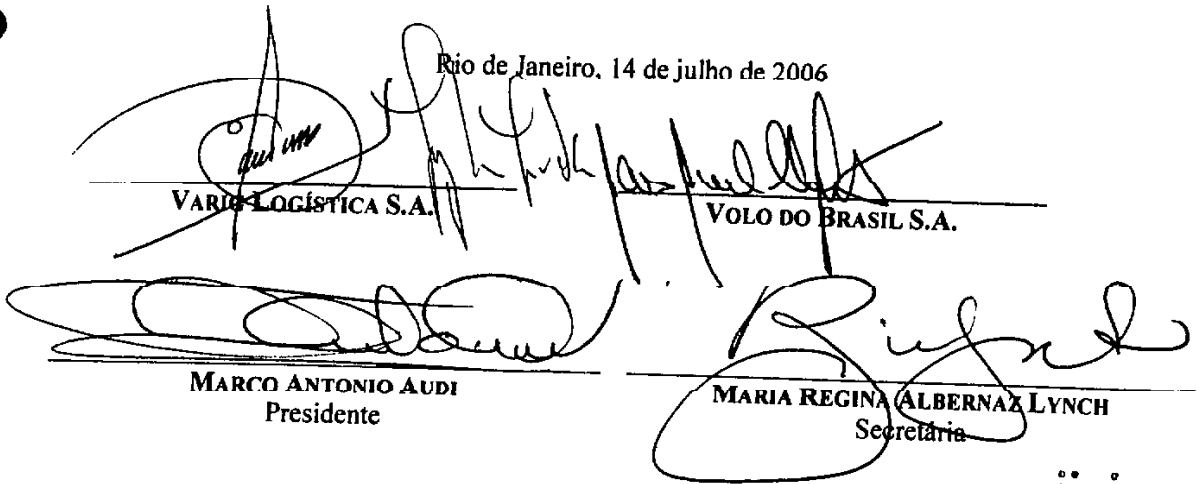 Rio de Janeiro, 14 de julho de 2006
VARIG LOGÍSTICA S.A.
VOLO DO BRASIL S.A.
MARCO ANTONIO AUDI
Presidente
MARIA REGINA ALBERNAZ LYNCH
Secretária